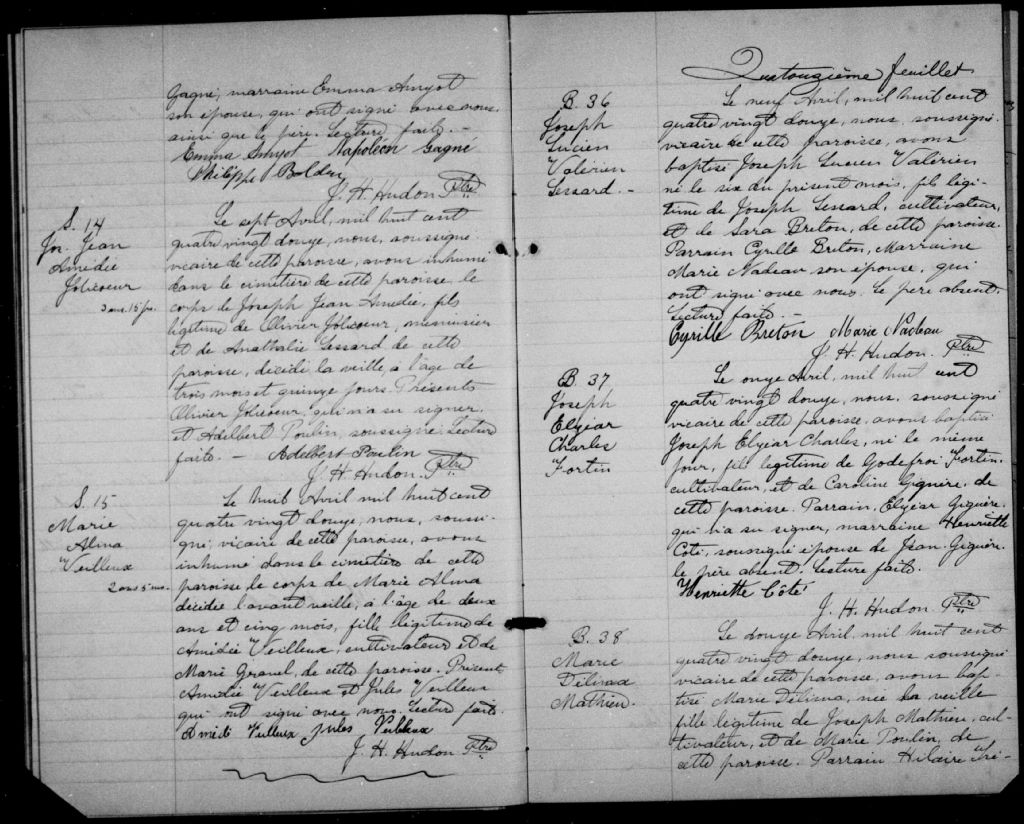 Gagné, marraine Emma Amyot
son épouse, qui ont signé avec nous
ainsi que le père. Lecture faite. -
Emma Amyot Napoléon Gagné
Philippe Bolduc
J. H. Hudon Ptre
S. 14
Jos. Jean
Amédie
Jolicoeur
3 ms. 15 jrs.
Le sept Avril, mil huit cent
quatre vingt douze, nous, soussigné
vicaire de cette paroisse, avons inhumé
dans le cimetière de cette paroisse, le
corps de Joseph Jean Amédie, fils
légitime de Olivier Jolicoeur, menuisier
et de Anathalie Lessard de cette
paroisse, décédé la veille, à l'âge de
trois mois et quinze jours. Présents
Olivier Jolicoeur, qui n'a su signer,
et Adelbert Poulin, soussigné. Lecture
faite. - Adelbert Poulin
J. H. Hudon. Ptre
S. 15
Marie
Alma
Veilleux
2 ans 5 ms.
Le huit Avril mil huit cent
quatre vingt douze, nous, soussi-
gné, vicaire de cette paroisse, avons
inhumé dans le cimetière de cette
paroisse le corps de Marie Alma
décédée l'avant veille, à l'âge de deux
ans et cinq mois, fille légitime de
Amédie Veilleux, cultivateur et de
Marie Gravel, de cette paroisse. Présent
Amédie Veilleux et Jules Veilleux
qui ont signé avec nous. Lecture faite.
Amédi Veilleux Jules Veilleux
J. H. Hudon Ptre
Quatorzième feuillet
B. 36
Joseph
Lucien
Valérien
Lessard. -
Le neuf Avril, mil huit cent
quatre vingt douze, nous, soussigné
vicaire de cette paroisse, avons
baptisé Joseph Lucien Valérien
né le six du présent mois, fils légi-
time de Joseph Lessard, cultivateur,
et de Sara Breton, de cette paroisse.
Parrain Cyrille Breton, Marraine
Marie Nadeau son épouse, qui
ont signé avec nous. Le père absent.
Lecture faite. -
Cyrille Breton Marie Nadeau
J. H. Hudon. Ptre
B. 37
Joseph
Elzéar
Charles
Fortin
Le onze Avril, mil huit cent
quatre vingt douze, nous, soussigné
vicaire de cette paroisse, avons baptisé
Joseph Elzéar Charles, né le même
jour, fils légitime de Godefroi Fortin,
cultivateur, et de Caroline Giguère, de
cette paroisse. Parrain, Elzéar Giguère,
qui n'a su signer, marraine Henriette
Coté, soussigné épouse de Jean Giguère.
le père absent. Lecture faite.
Henriette Côté
J. H. Hudon Ptre
B. 38
Marie
Délima
Mathieu.
Le douze Avril, mil huit cent
quatre vingt douze, nous soussigné
vicaire de cette paroisse, avons bap-
tisé Marie Délima, née la veille
fille légitime de Joseph Mathieu, cul-
tivateur, et de Marie Poulin, de
cette paroisse. Parrain Hilaire